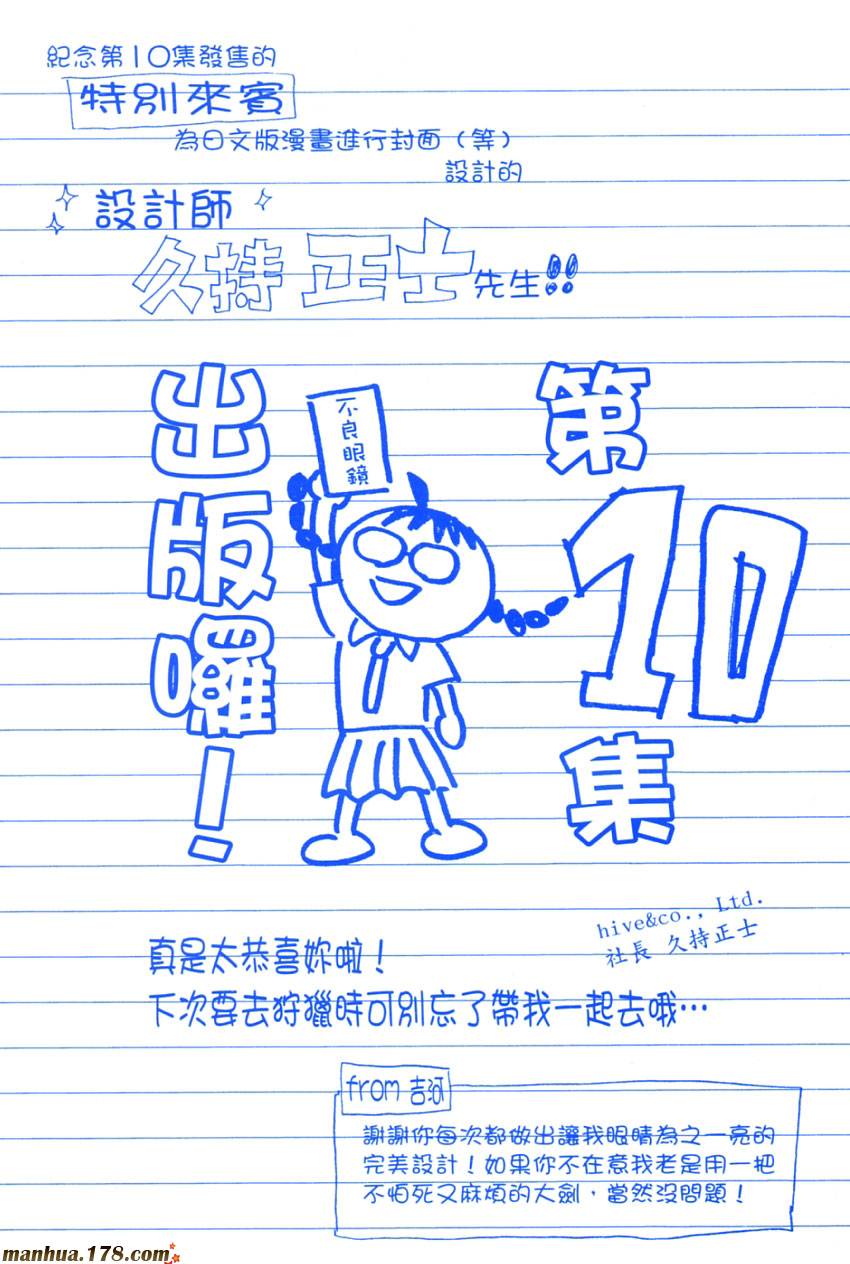 紀念第10集發售的
特別來賓
為日文版漫畫進行封面（等）
設計的
設計師
久持 正士先生!!
第10集
出版囉！
不良眼鏡
hive&co., Ltd.
社長 久持正士
真是太恭喜妳啦！
下次要去狩獵時可別忘了帶我一起去哦…
from 吉河
謝謝你每次都做出讓我眼睛為之一亮的
完美設計！如果你不在意我老是用一把
不怕死又麻煩的大劍，當然沒問題！
manhua.178.com